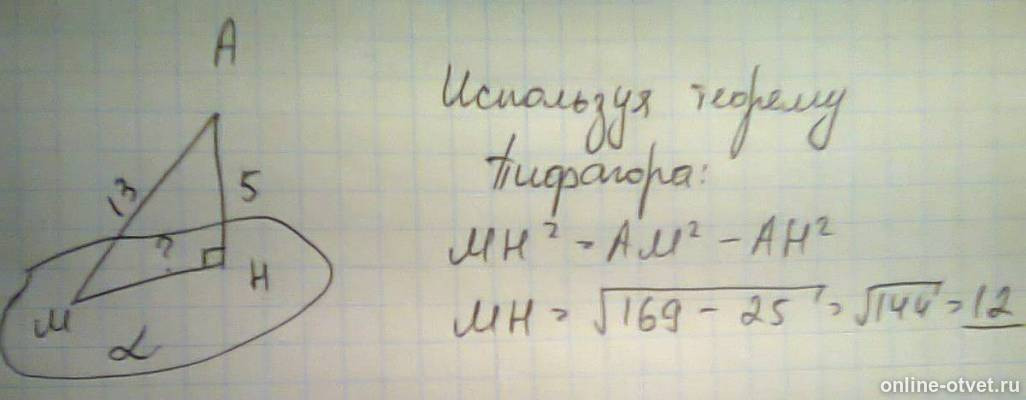 A
Используя теорему
Пифагора:
13
5
MH² = AM² - AH²
?
H
M
MH = √169 - 25 = √144 = 12
α
online-otvet.ru